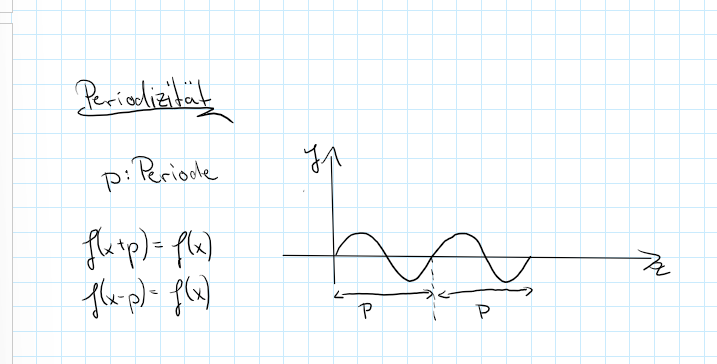 Periodizität
p: Periode
f(x+p) = f(x)
f(x-p) = f(x)
y
x
p
p